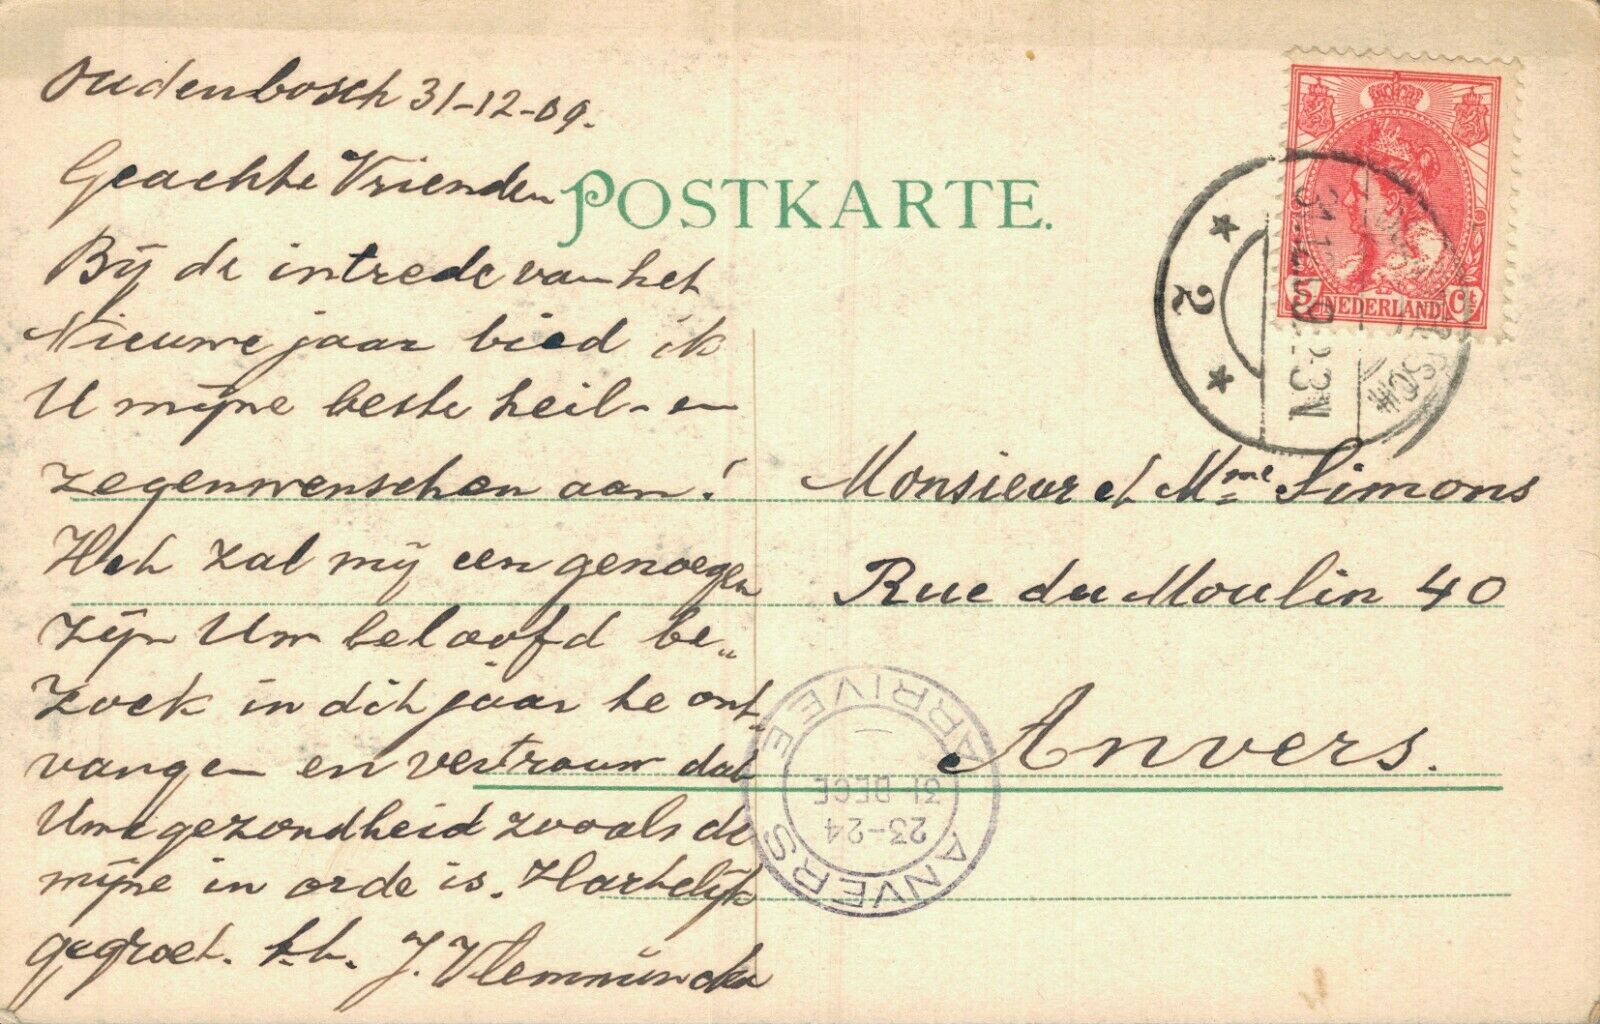 Oudenbosch 31-12-09.
Geachte Vrienden
Bij de intrede van het
Nieuwe jaar bied ik
U mijne beste heil- en
zegenwenschen aan!
Het zal mij een genoegen
zijn Uw beloofd be„
zoek in dit jaar te ont„
vangen en vertrouw dat
Uwe gezondheid zooals de
mijne in orde is. Hartelijk
gegroet. t.t. J.
POSTKARTE.
NEDERLAND
5 Ct
2
Monsieur et Mme Simons
Rue du Moulin 40
Anvers.
ANVERS
ARRIVEE
23-24
31 DECE